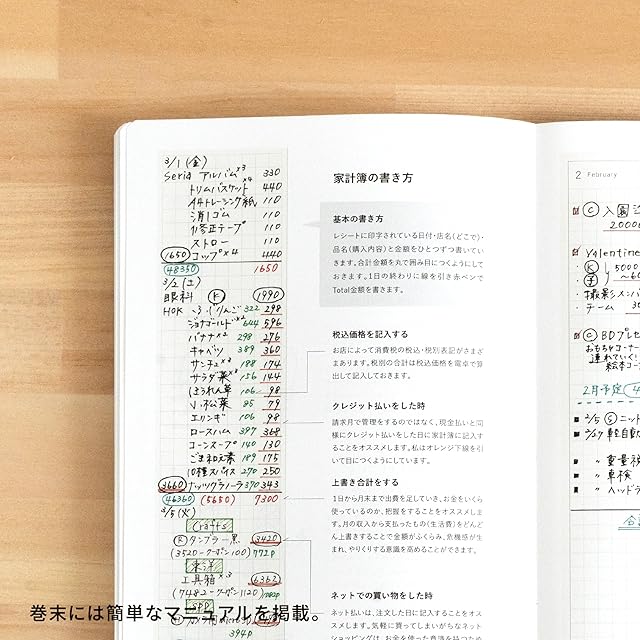 3/1(金)
Seria アルバム×3 330
トリムバスケット×4 440
A4トレーシング紙 110
消しゴム 110
修正テープ 110
ストロー 110
1650 コップ×4 440
48350 1650
3/2(土)
眼科 K 1990
HOK ふじりんご 322 298
ジョナゴールド×2 644 596
バナナ×2 298 276
キャベツ 389 360
サンチュ×3 188 174
サラダ菜×3 156 144
ほうれん草 106 98
小松菜 85 79
エリンギ 106 98
ロースハム 397 368
コーンスープ 140 130
ごま和え素 189 175
10種スパイス 270 250
3660 ナッツグラノーラ 370 343
46360 (5650) 7300
3/5(火)
Crafts
K タンブラー黒 3420
(3520-クーポン100) 772P
東洋
工具箱×3 6362
(7482-クーポン1120)
394P
家計簿の書き方
基本の書き方
レシートに印字されている日付・店名(どこで)・
品名(購入内容)と金額をひとつずつ書いてい
きます。合計金額を丸で囲み目につくようにして
おきます。1日の終わりに線を引き赤ペンで
Total金額を書きます。
税込価格を記入する
お店によって消費税の税込・税別表記がさまざ
まあります。税別の合計は税込価格を電卓で算
出して記入しておきます。
クレジット払いをした時
請求月で管理をするのではなく、現金払いと同
様にクレジット払いをした日に家計簿に記入す
ることをオススメします。私はオレンジ下線を引
いて目につくようにしています。
上書き合計をする
1日から月末まで出費を足していき、お金をいくら
使っているのか、把握をすることをオススメしま
す。月の収入から支払ったもの(生活費)をどんど
ん上書きすることで金額がふくらみ、危機感が生
まれ、やりくりする意識を高めることができます。
ネットでの買い物をした時
ネット払いは、注文した日に記入することをオス
スメします。気軽に買ってしまいがちなネット
ショッピングは、お金を使った意識を持つため
2 February
C 入園
20000
Valentine
K 5000
子 〜60
・撮影スニ
・チーム
C BDプレゼ
おもちゃコーナー
連れていく!
絵本コー
2月予定
2/5 S ニット
2/27 軽自動
〃 重量税
〃 車検
〃 ヘッドラ
巻末には簡単なマニュアルを掲載。